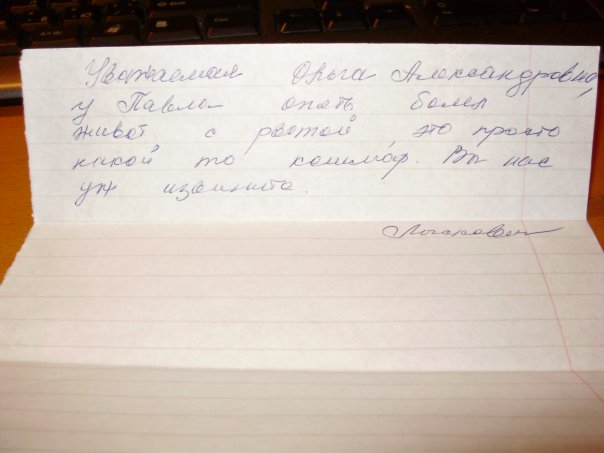 Уважаемая Ольга Александровна,
у Павла опять болел
живот с рвотой, это просто
какой то кошмар. Вы нас
уж извините.